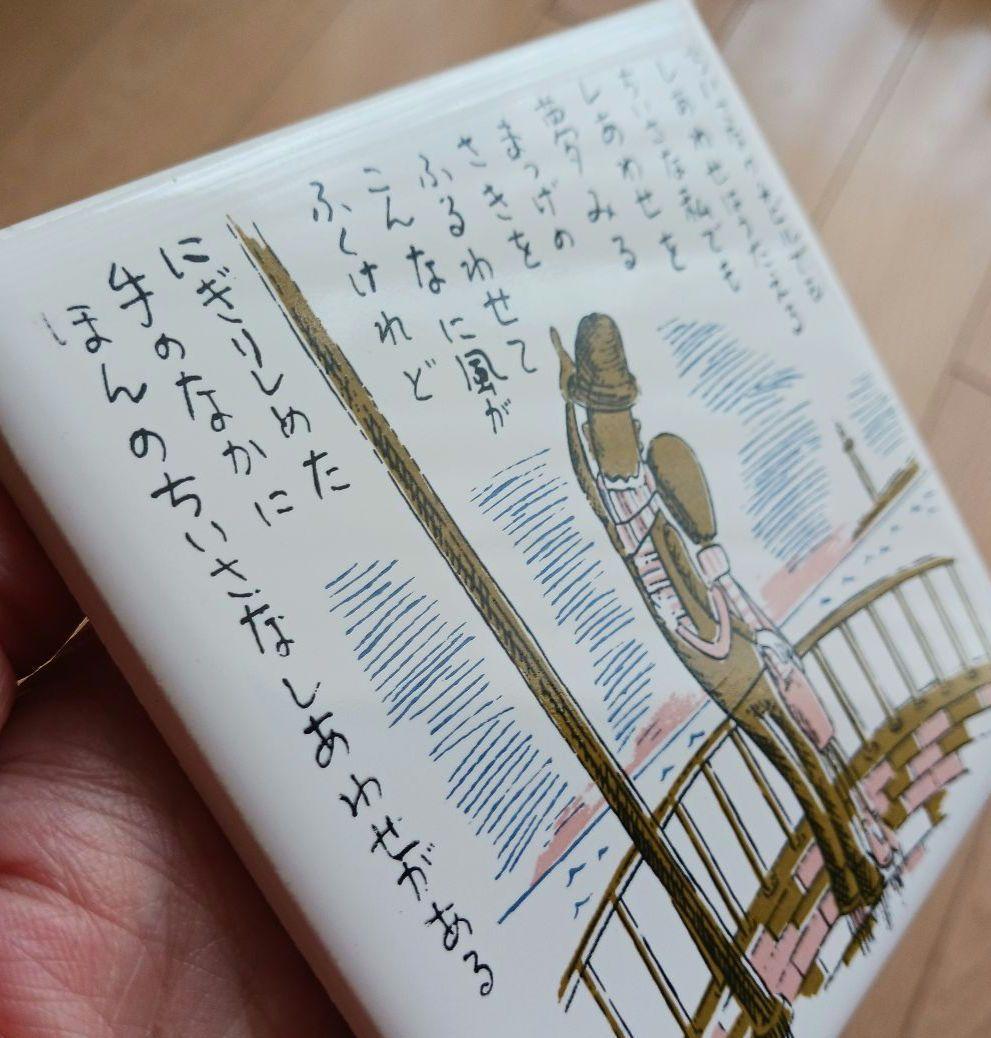 しあわせは
ちいさな葩でも
しあわせを
夢みる
まつげの
さきを
ふるわせて
こんなに風が
ふくけれど
にぎりしめた
手のなかに
ほんのちいさなしあわせがある